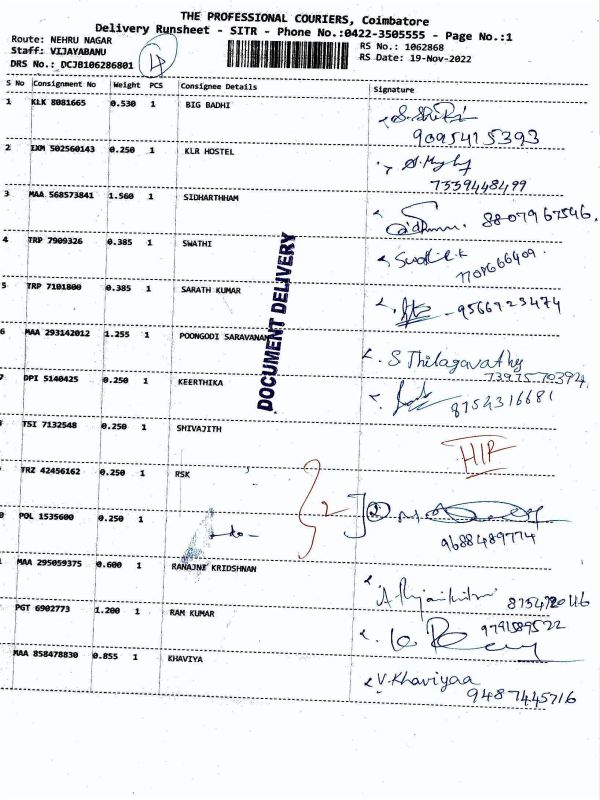 THE PROFESSIONAL COURIERS, Coimbatore
Delivery Runsheet - SITR - Phone No.:0422-3505555 - Page No.:1
Route: NEHRU NAGAR
RS No.: 1062868
Staff: VIJAYABANU
RS Date: 19-Nov-2022
DRS No.: DCJB106286801
S No Consignment No Weight PCS Consignee Details Signature
1 KLK 8081665 0.530 1 BIG BADHI
9095415393
2 EXM 502560143 0.250 1 KLR HOSTEL
7559448499
3 MAA 568573841 1.560 1 SIDHARTHHAM
8807967546
4 TRP 7909326 0.385 1 SWATHI
5 TRP 7101800 0.385 1 SARATH KUMAR
9566723474
6 MAA 293142012 1.255 1 POONGODI SARAVANAN
S Thilagavathy
7397570394
7 DPI 5140425 0.250 1 KEERTHIKA
8754316681
TSI 7132548 0.250 1 SHIVAJITH
TRZ 42456162 0.250 1 RSK
2
0 POL 1535600 0.250 1
-do-
9688489774
MAA 295059375 0.600 1 RANAJNI KRIDSHNAN
PGT 6902773 1.200 1 RAM KUMAR
9791589522
MAA 858478830 0.855 1 KHAVIYA
V.Khaviyaa
9487445716
DOCUMENT DELIVERY